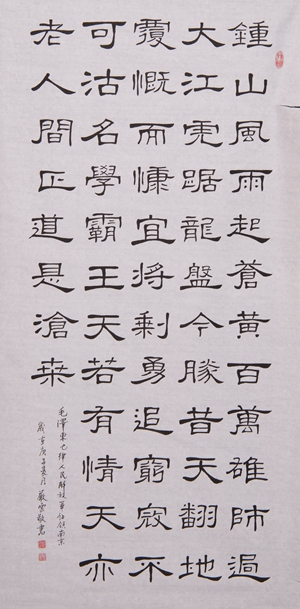 鍾山風雨起蒼黃百萬雄師過
大江虎踞龍盤今勝昔天翻地
覆慨而慷宜將剩勇追窮寇不
可沽名學霸王天若有情天亦
老人間正道是滄桑
毛澤東七律人民解放軍佔領南京
歲在庚子夏月嚴雲敬書